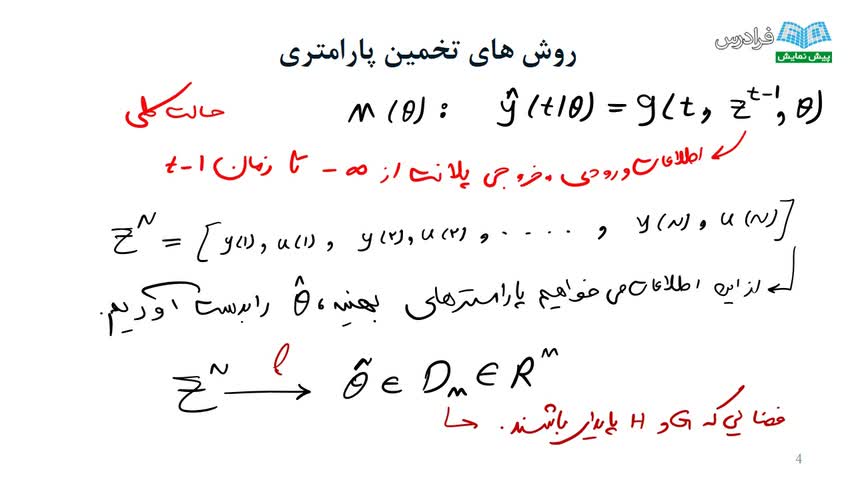 فرادرس
پیش نمایش
روش های تخمین پارامتری
حالت کلی M(θ) : ŷ(t|θ) = g(t, z^{t-1}, θ)
اطلاعات ورودی و خروجی پلانت از ∞ - تا زمان t-1
Z^N = [y(1), u(1), y(2), u(2), ....., y(N), u(N)]
از این اطلاعات می خواهیم پارامترهای بهینه، θ̂ را بدست آوریم.
Z^N → θ̂ ∈ D_M ∈ R^n
فضایی که G و H پایدار باشند.
4